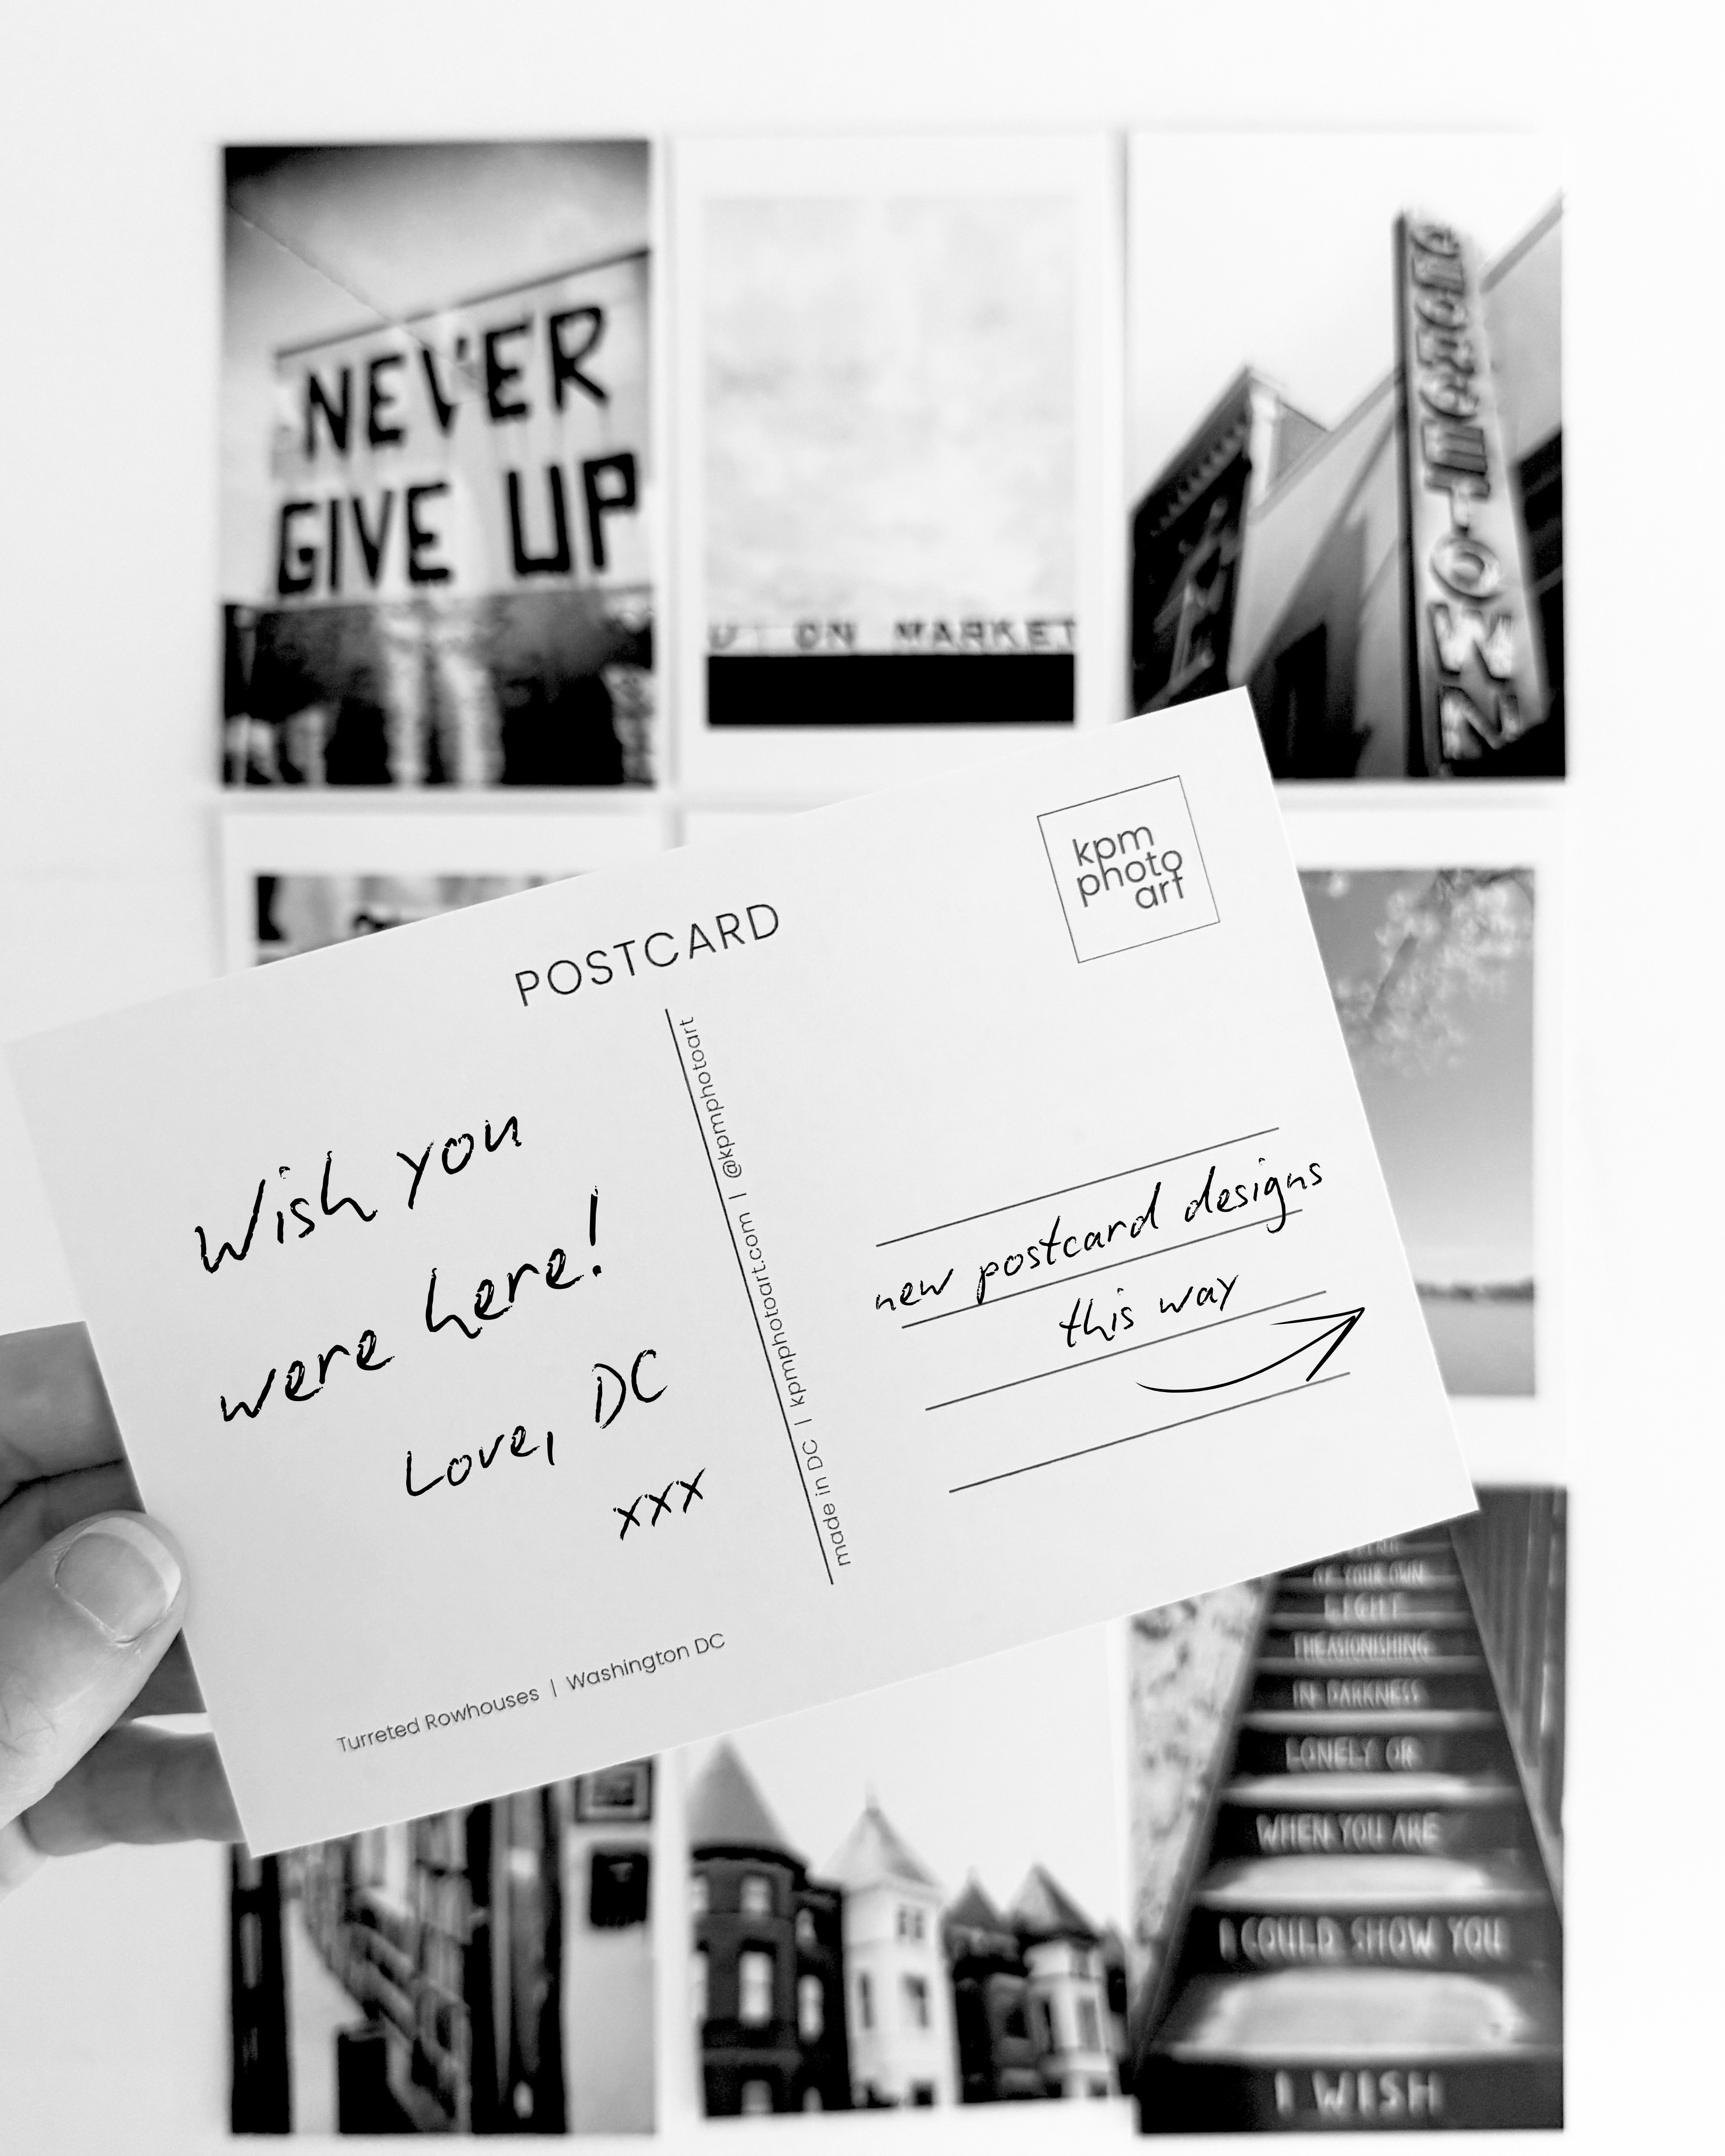 NEVER
GIVE UP
U ON MARKET
GEORGETOWN
POSTCARD
kpm
photo
art
Wish you
were here!
Love, DC
xxx
made in DC | kpmphotoart.com | @kpmphotoart
new postcard designs
this way
Turreted Rowhouses | Washington DC
OF YOUR OWN
LIGHT
THE ASTONISHING
IN DARKNESS
LONELY OR
WHEN YOU ARE
I COULD SHOW YOU
I WISH